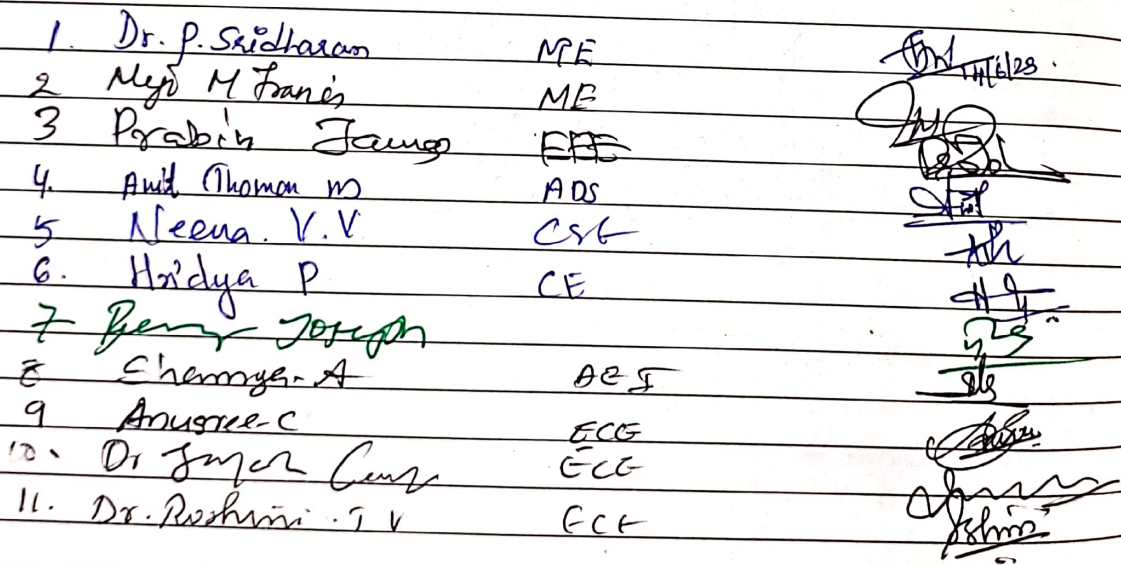 1. Dr. P. Sridharan ME 14/6/23.
2 Mejo M Francis ME
3 Prabin James EEE
4. Anit Thomas M ADS
5 Neena. V.V CSE
6. Hridya P CE
7 Benny Joseph
8 Dhannya. A AEI
9 Anusree-C ECE
10. Dr ECE
11. Dr. Roshini. T V ECE